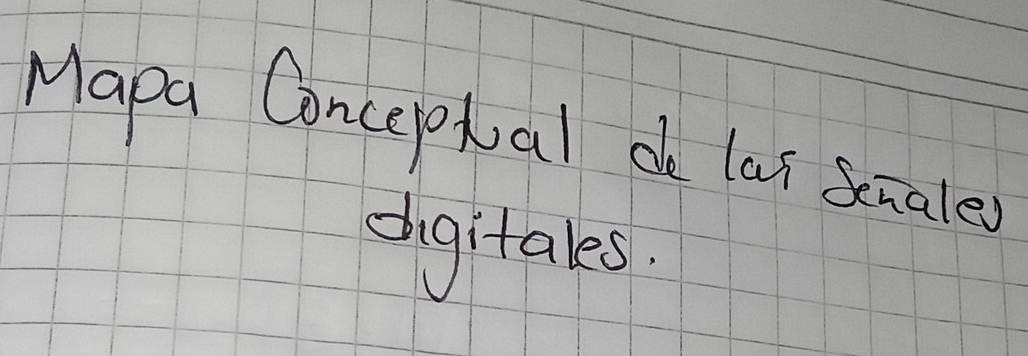 Mapa Conceptual de las señales
digitales.